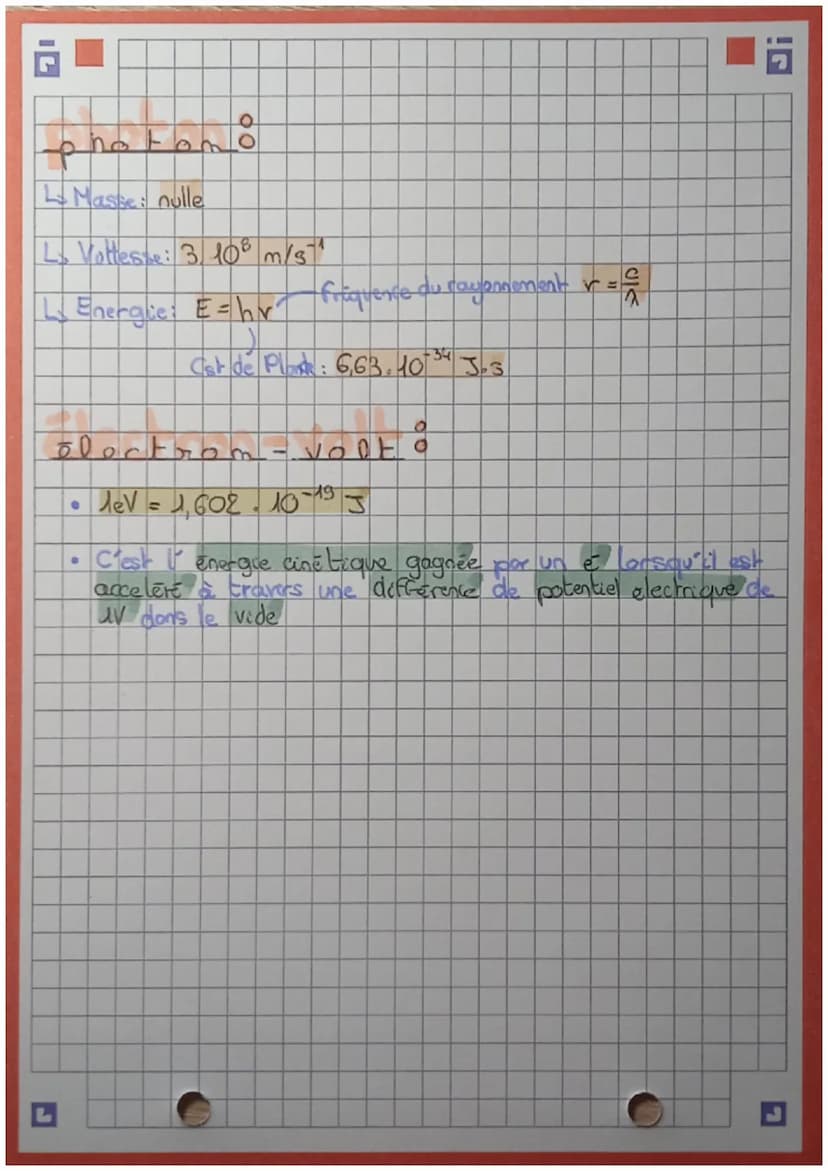 photon :
↳ Masse : nulle
↳ Vottesse : 3.10⁸ m/s⁻¹
↳ Energie : E = hν fréquence du rayonnement ν = c/λ
Cst de Planck : 6,63.10⁻³⁴ J.s
électron-volt :
• 1eV = 1,602 . 10⁻¹⁹ J
• C'est l' énergie cinétique gagnée par un e⁻ lorsqu'il est
acceléré à travers une différence de potentiel electrique de
1V dans le vide